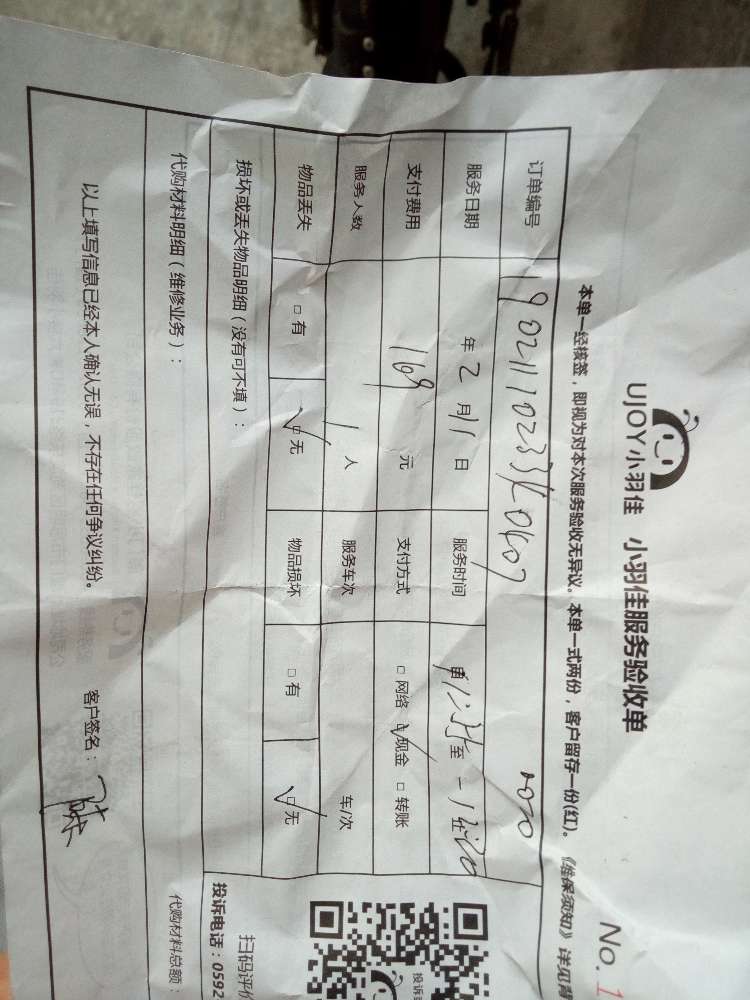 UJOY小羽佳 小羽佳服务验收单
No. 1
本单一经核签，即视为对本次服务验收无异议。本单一式两份，客户留存一份(红)。《维保须知》详见背
订单编号
服务日期 年 2 月 11 日 服务时间 至
支付费用 169 元 支付方式 □ 网络 ☑ 现金 □ 转账
服务人数 1 人 服务车次 车/次
物品丢失 □ 有 ☑ 无 物品损坏 □ 有 ☑ 无
损坏或丢失物品明细（没有可不填）：
代购材料明细（维修业务）：
代购材料总额：
以上填写信息已经本人确认无误，不存在任何争议纠纷。 客户签名：
投诉
扫码评价
投诉电话：0592